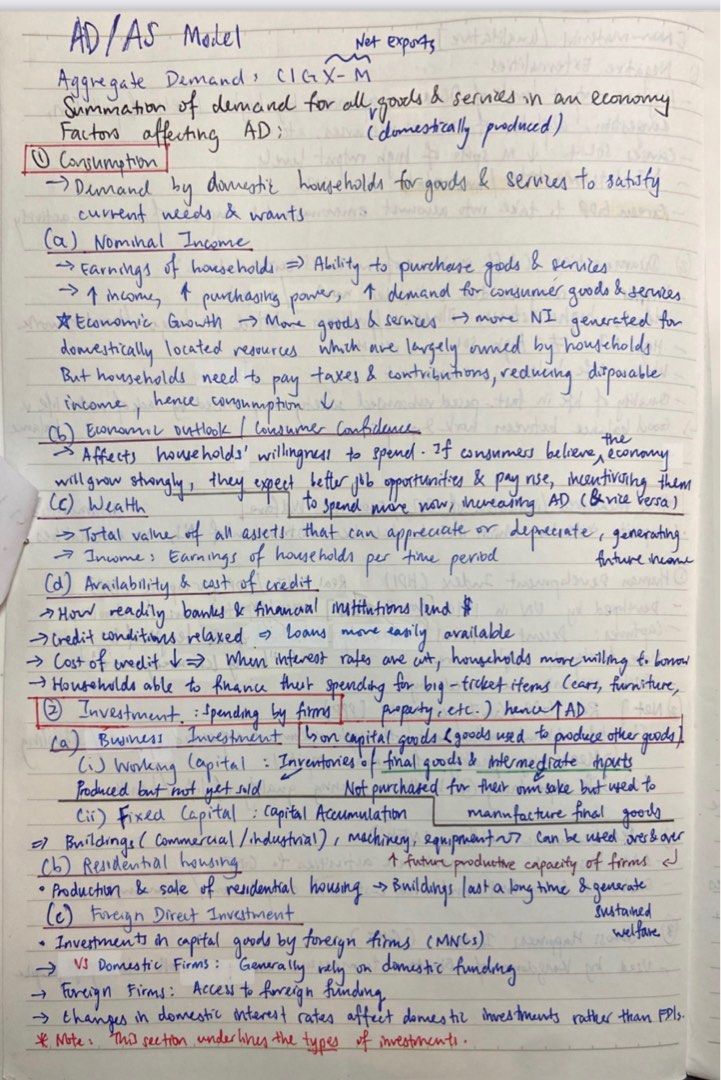 AD/AS Model
Net exports
Aggregate Demand : C I G X-M
Summation of demand for all goods & services in an economy
Factors affecting AD : (domestically produced)
① Consumption
→ Demand by domestic households for goods & services to satisfy
current needs & wants
(a) Nominal Income
→ Earnings of households ⇒ Ability to purchase gods & services
→ ↑ income, ↑ purchasing power, ↑ demand for consumer goods & services
☆ Economic Growth → More goods & services → more NI generated for
domestically located resources which are largely owned by households
But households need to pay taxes & contributions, reducing disposable
income, hence consumption ↓
(b) Economic outlook / Consumer Confidence
→ Affects households' willingness to spend. If consumers believe the economy
will grow strongly, they expect better job opportunities & pay rise, incentivising them
to spend more now, increasing AD (& vice versa)
(c) Wealth
→ Total value of all assets that can appreciate or depreciate, generating
future income
→ Income : Earnings of households per time period
(d) Availability & cost of credit
→ How readily banks & financial institutions lend $
→ Credit conditions relaxed ⇒ Loans more easily available
→ Cost of credit ↓ ⇒ When interest rates are cut, households more willing to borrow
→ Households able to finance their spending for big-ticket items (cars, furniture,
property, etc.) hence ↑ AD
② Investment : spending by firms
↳ on capital goods [goods used to produce other goods]
(a) Business Investment
(i) Working Capital : Inventories of final goods & intermediate inputs
Produced but not yet sold Not purchased for their own sake but used to
manufacture final goods
(ii) Fixed Capital : Capital Accumulation
⇒ Buildings (commercial/industrial), machinery, equipment ~> can be used over & over
↑ future productive capacity of firms ↵
(b) Residential housing
• Production & sale of residential housing → Buildings last a long time & generate
sustained
welfare
(c) Foreign Direct Investment
• Investments in capital goods by foreign firms (MNCs)
→ VS Domestic Firms : Generally rely on domestic funding
→ Foreign Firms : Access to foreign funding
→ Changes in domestic interest rates affect domestic investments rather than FDIs.
* Note : This section underlines the types of investments.